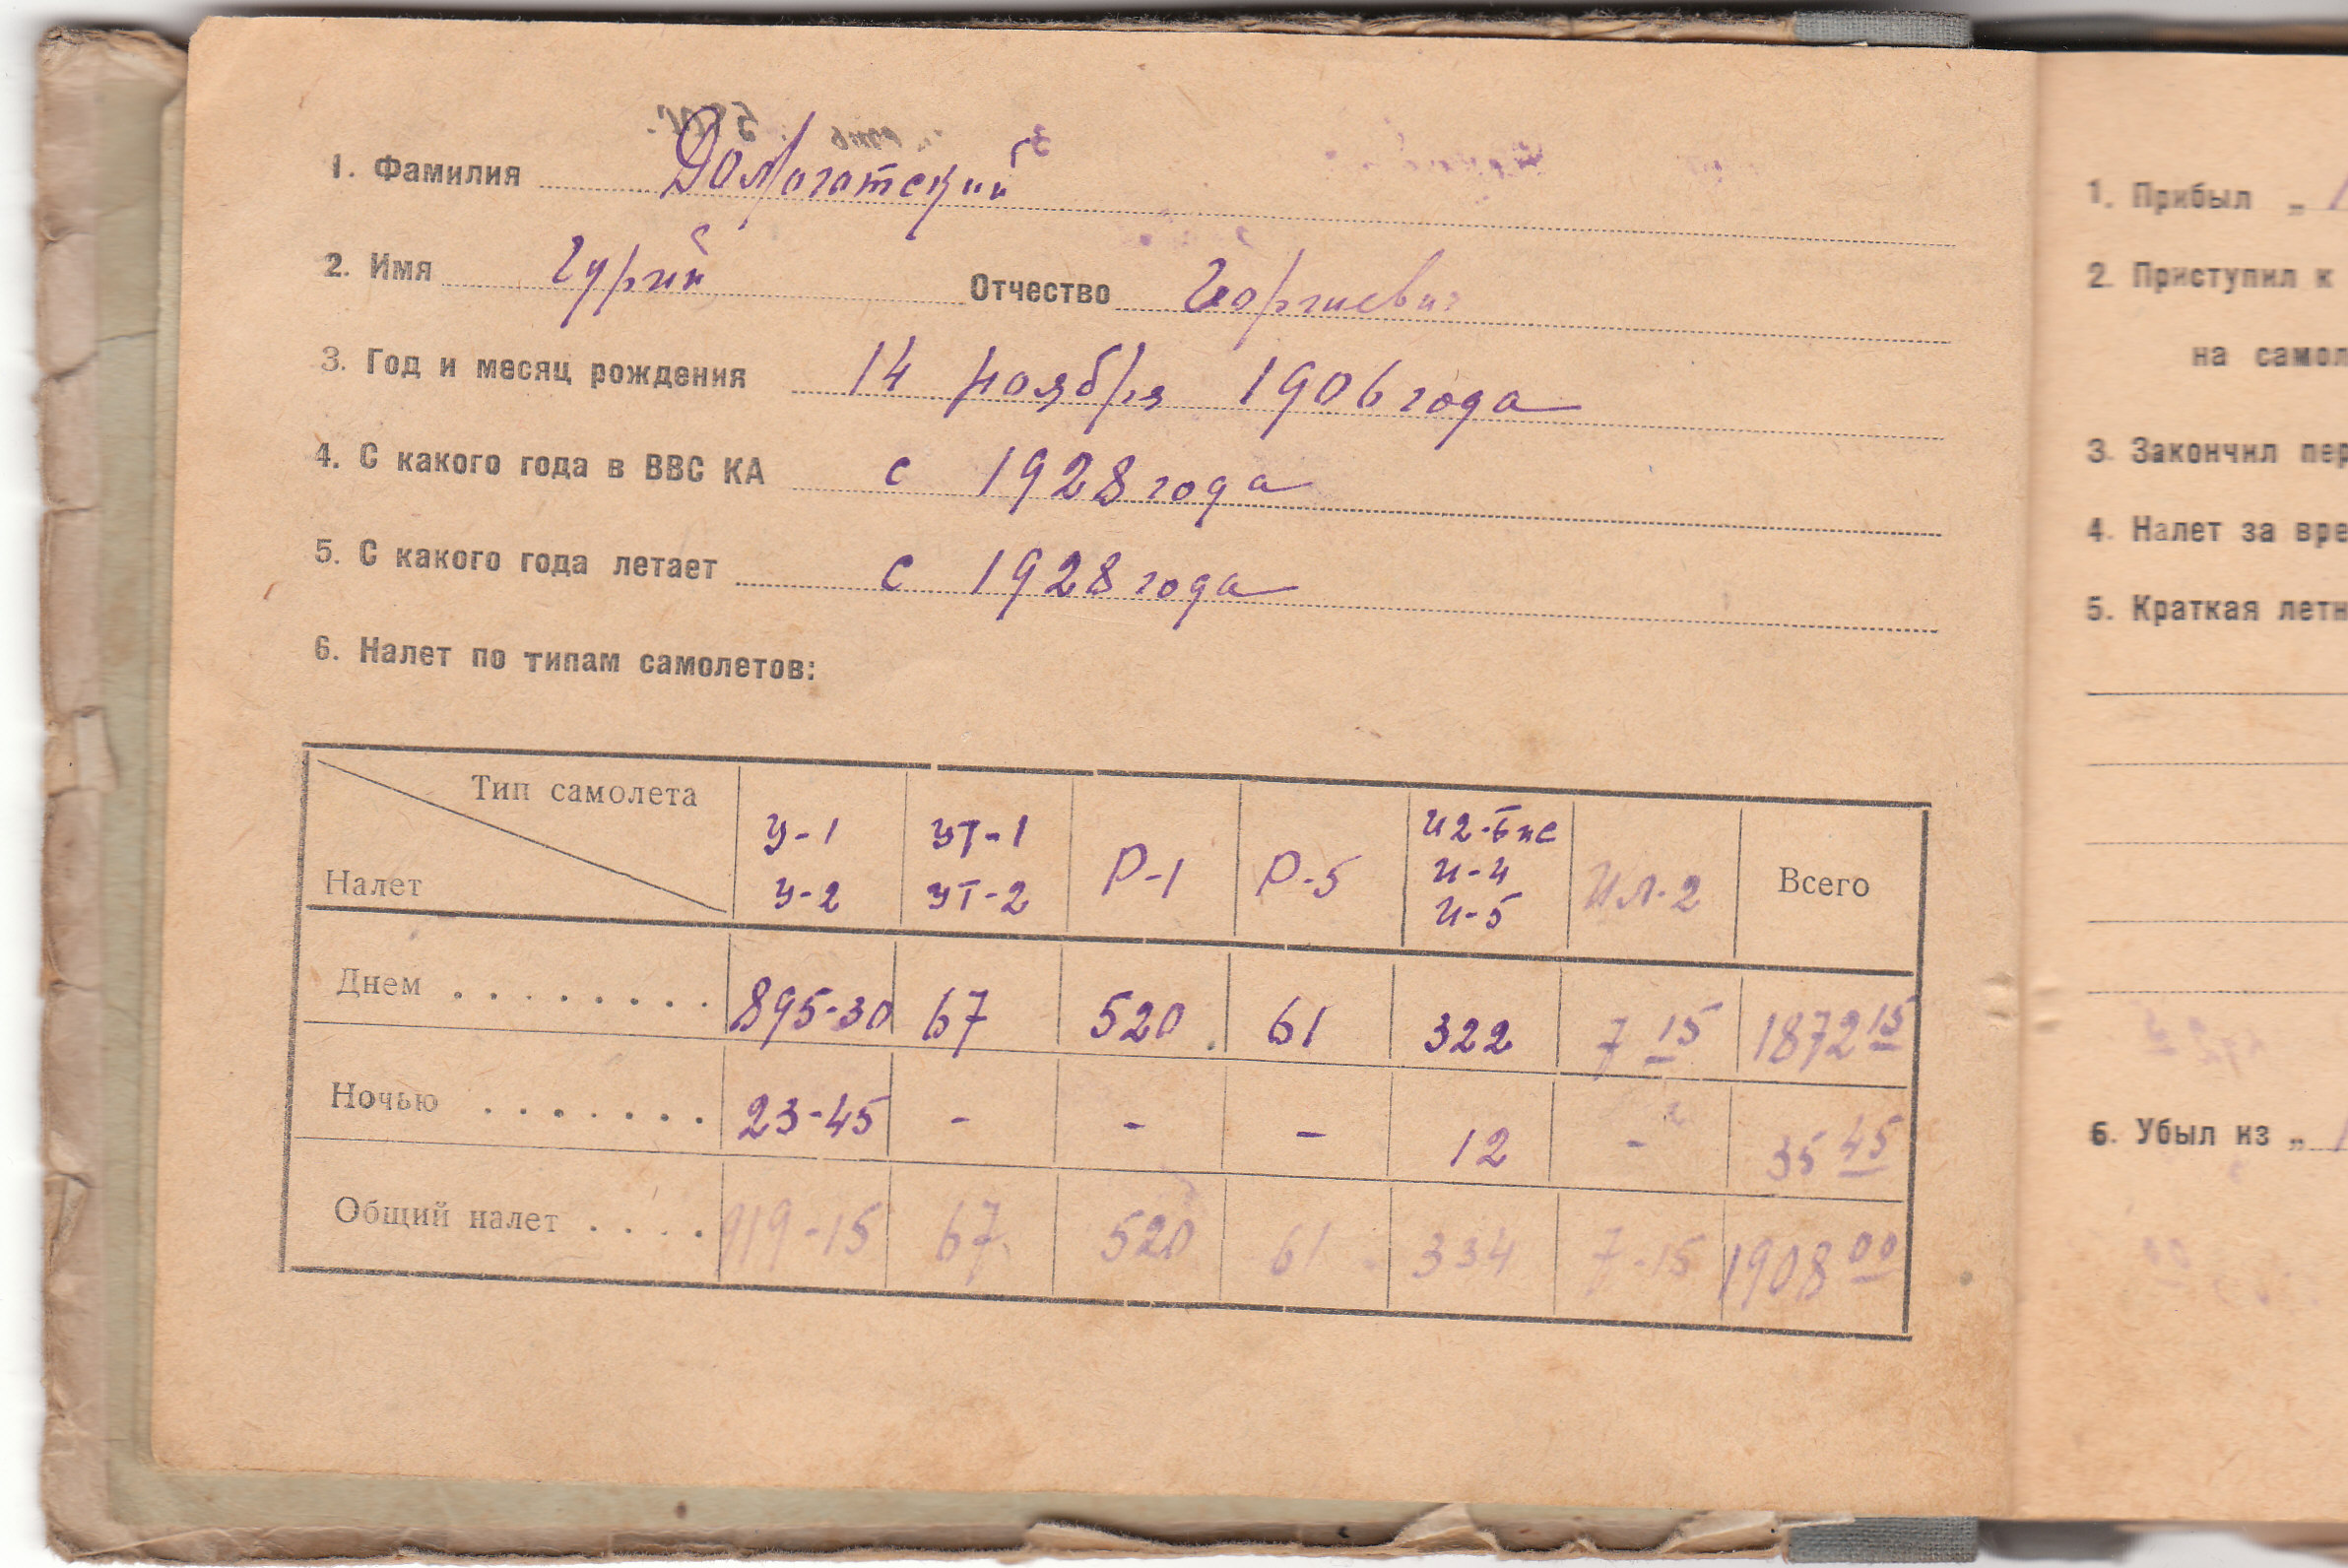 1. Фамилия Домогатский
2. Имя Гурий Отчество Георгиевич
3. Год и месяц рождения 14 ноября 1906 года
4. С какого года в ВВС КА с 1928 года
5. С какого года летает с 1928 года
6. Налет по типам самолетов:
Тип самолета У-1 УТ-1 И2-бис
Налет У-2 УТ-2 Р-1 Р-5 И-4 Ил-2 Всего
И-5
Днем 895-30 67 520 61 322 7 15 1872 15
Ночью 23-45 - - - 12 - 35 45
Общий налет 919-15 67 520 61 334 7-15 1908 00
1. Прибыл „
2. Приступил к
на самол
3. Закончил пер
4. Налет за вре
5. Краткая летн
6. Убыл из „